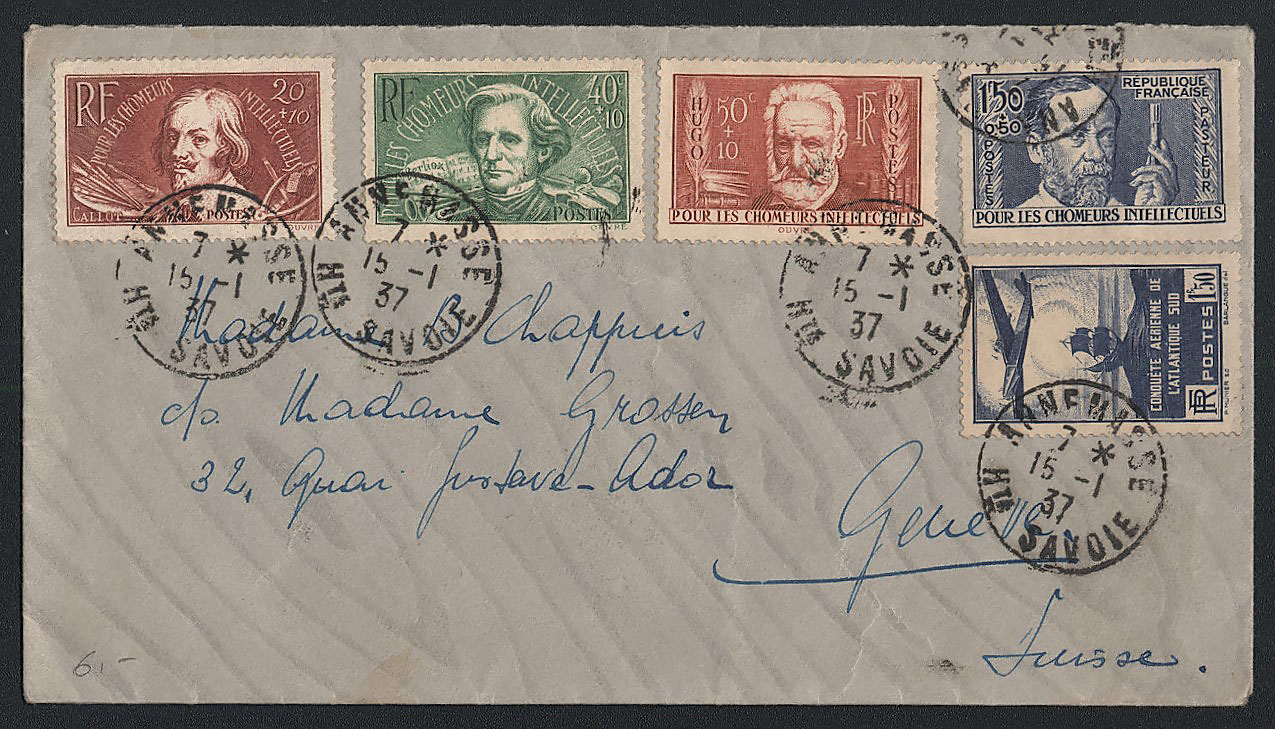 RF POUR LES CHOMEURS INTELLECTUELS 20c +10
CALLOT POSTES
OUVRÉ
RF LES CHOMEURS INTELLECTUELS 40c +10
Berlioz
POSTES
OUVRÉ
HUGO 50c + 10 RF POSTES
POUR LES CHOMEURS INTELLECTUELS
OUVRÉ
1f50 + 0f50 RÉPUBLIQUE FRANÇAISE
POSTES PASTEUR
POUR LES CHOMEURS INTELLECTUELS
CONQUÊTE AÉRIENNE DE
L'ATLANTIQUE SUD
RF POSTES 1f50
ANNEMASSE
7 *
15 -1
37
HTE SAVOIE
ANNEMASSE
7 *
15 -1
37
HTE SAVOIE
ANNEMASSE
7 *
15 -1
37
HTE SAVOIE
ANNEMASSE
7 *
15 -1
37
HTE SAVOIE
Madame B. Chappuis
c/o. Madame Grossen
32, Quai Gustave-Ador
Genève
Suisse.
6.-